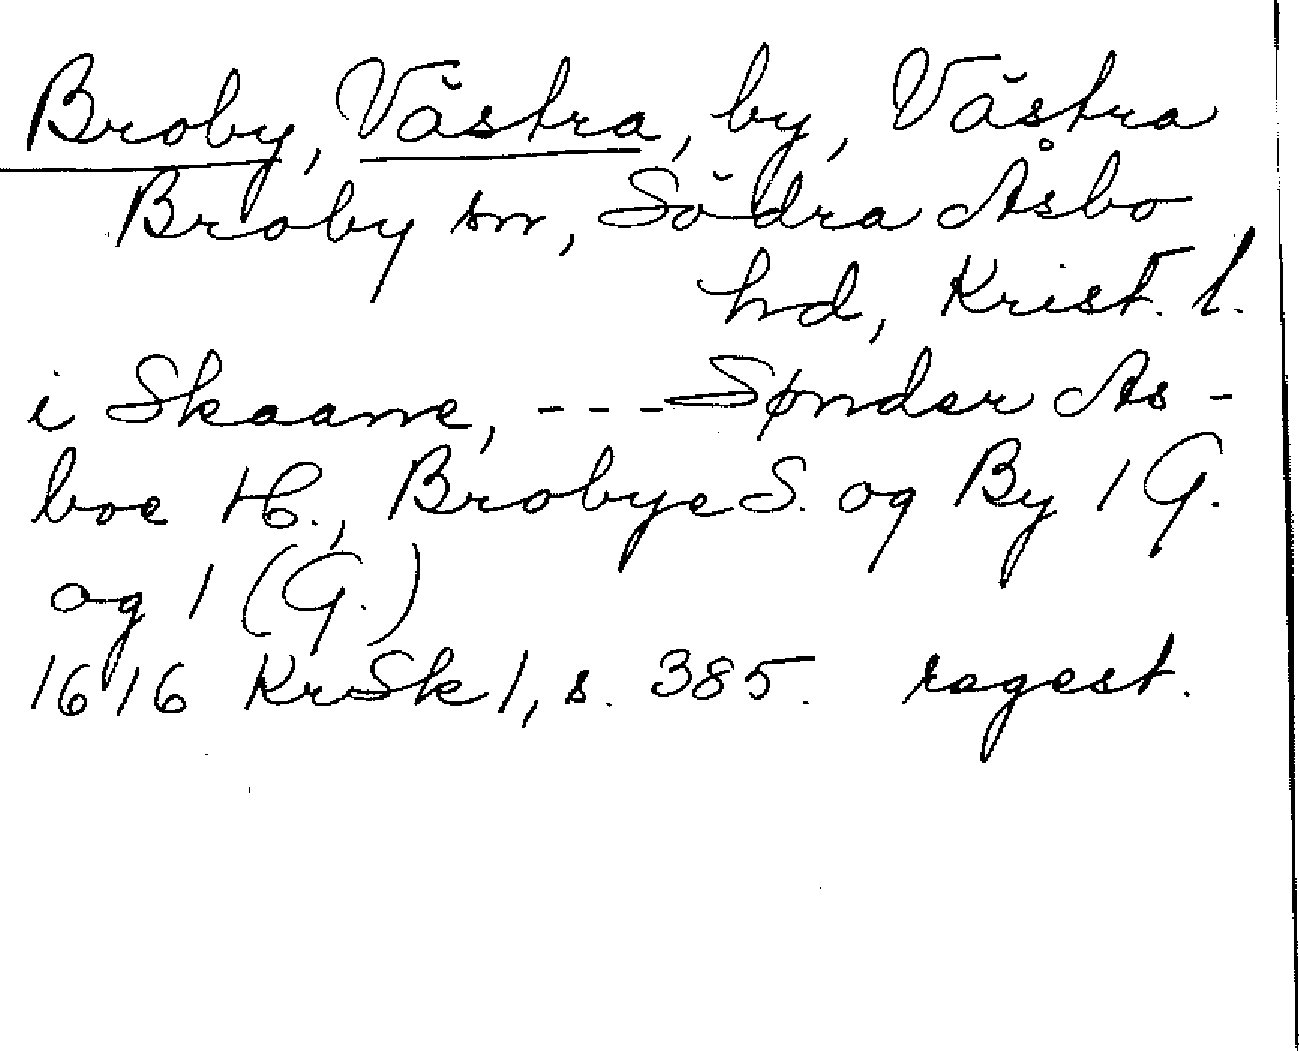 Broby, Västra, by, Västra
Broby sn, Södra Åsbo
hd, Krist. l.
i Skaane, --- Sønder As-
boe H., Brobye S. og By 1 G.
og 1 (G.)
1616 KrSk 1, s. 385. regest.